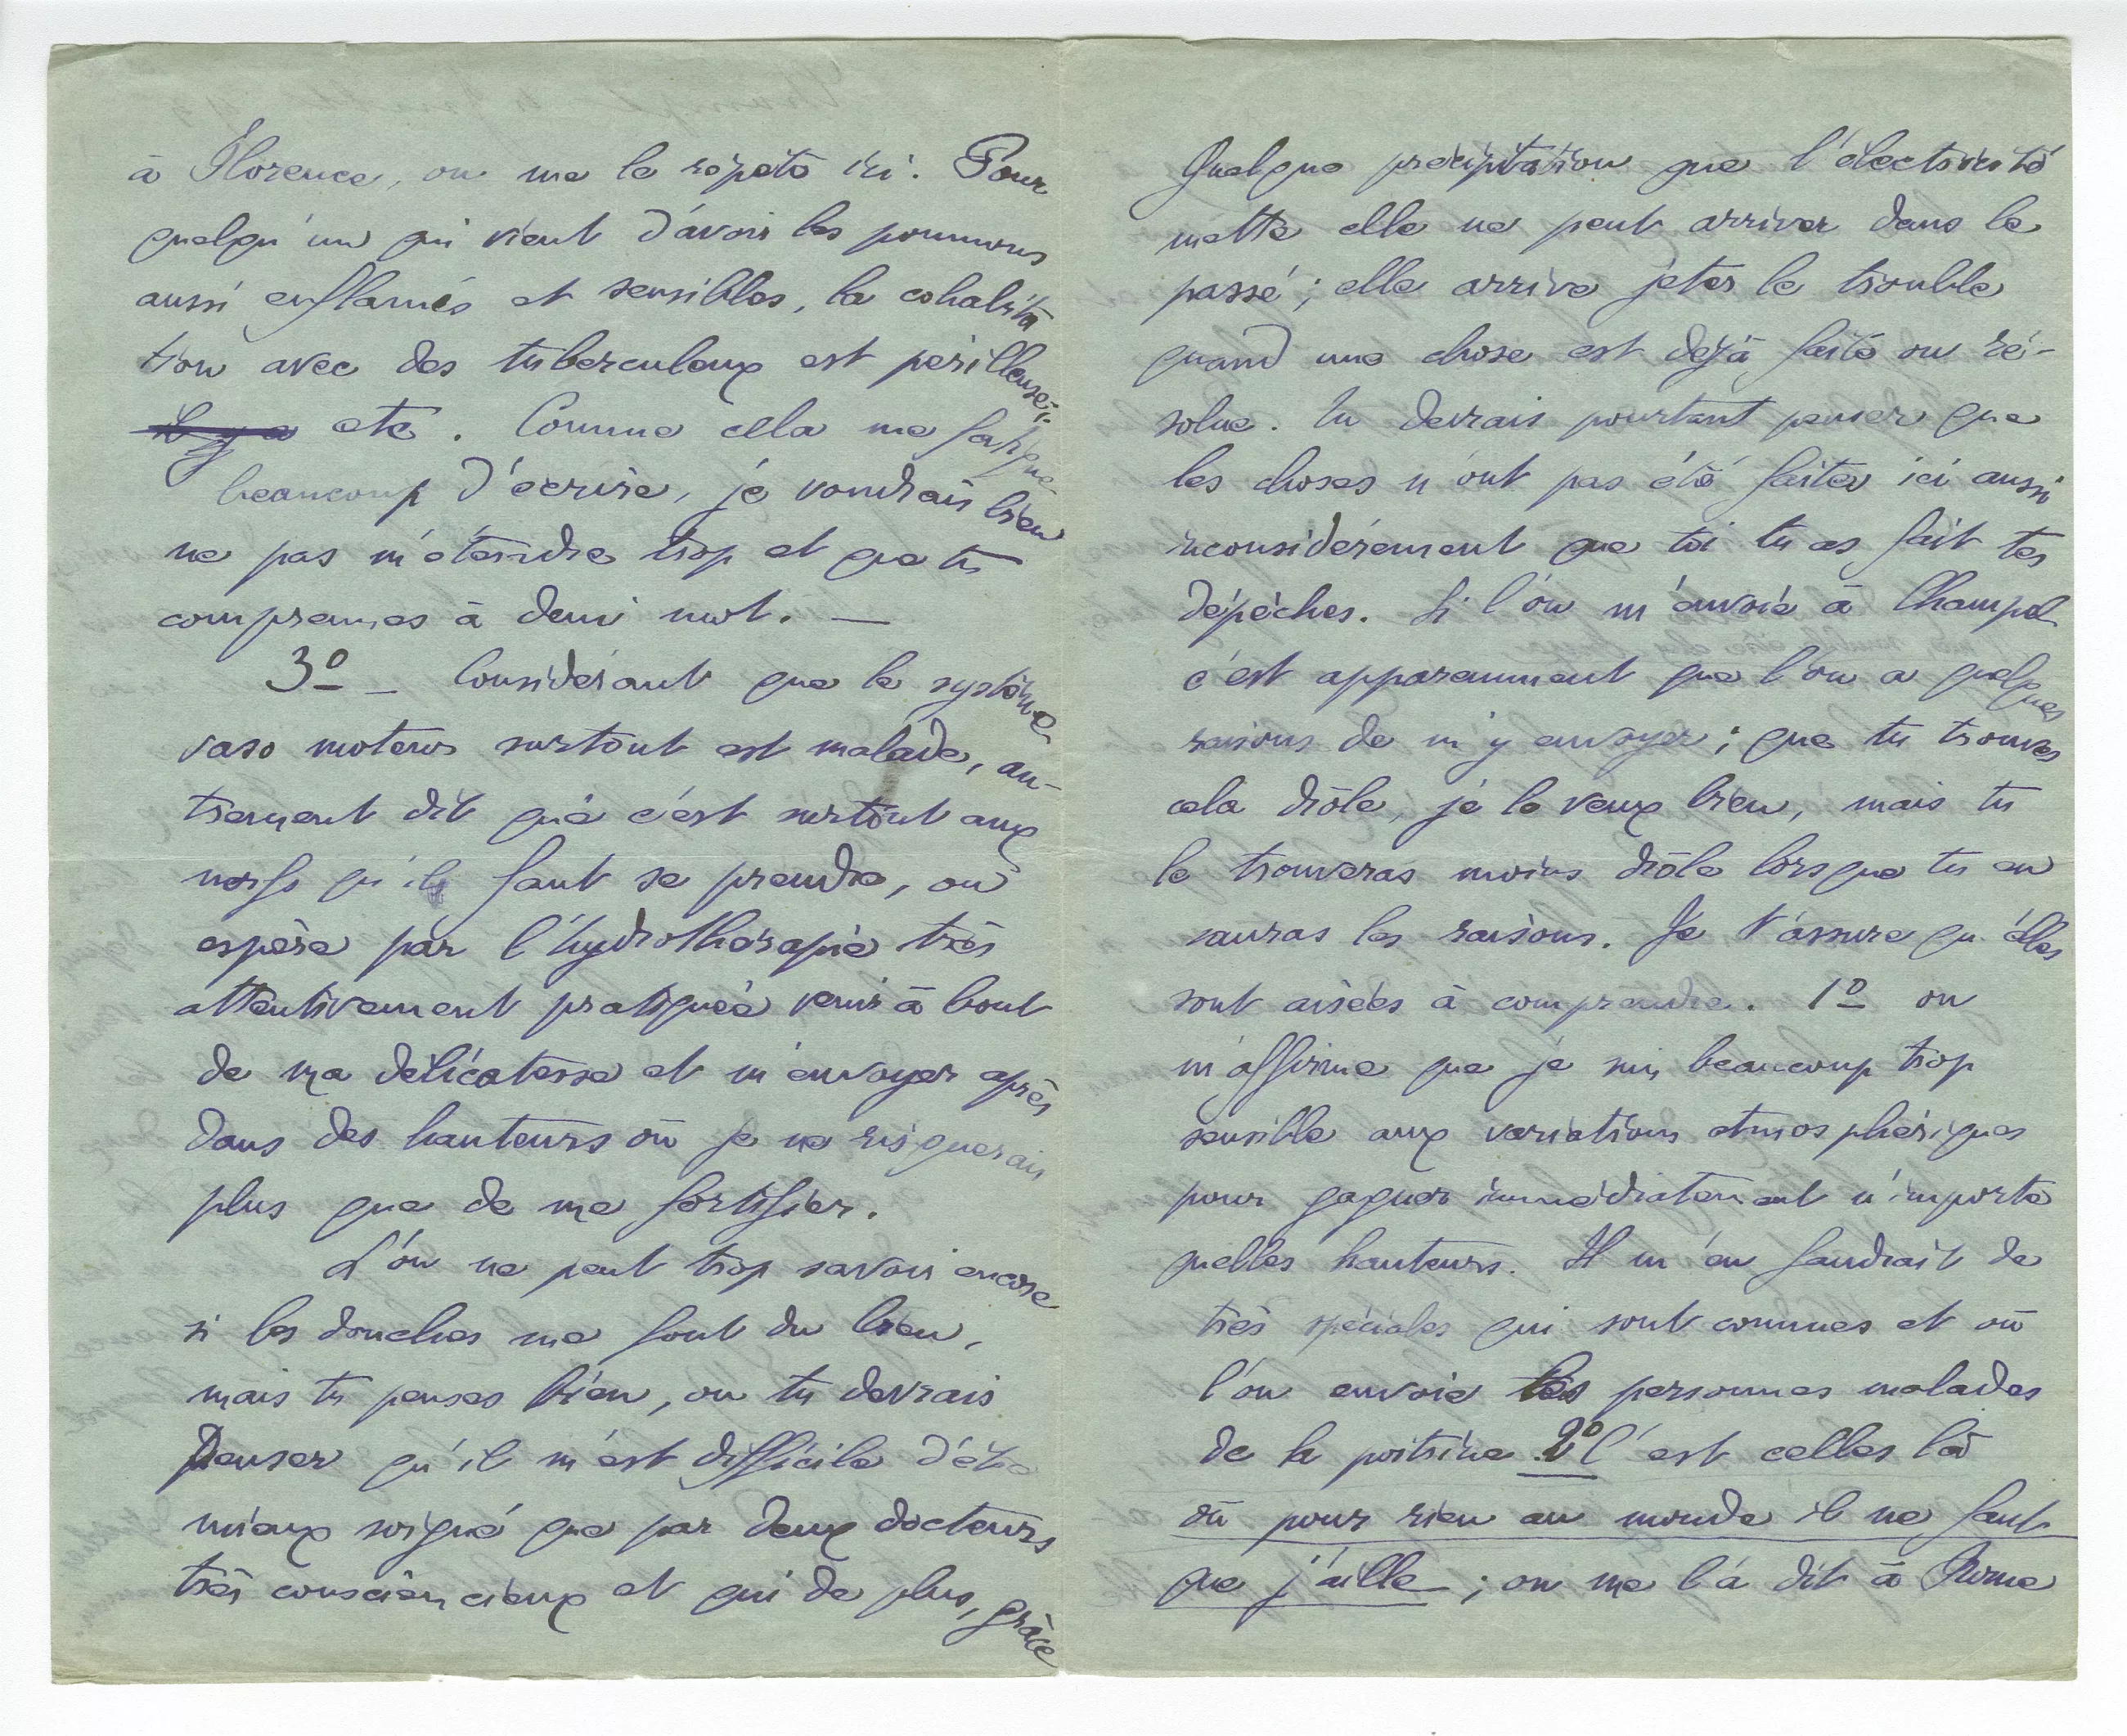 à Florence, on me le répète ici. Pour
quelqu'un qui vient d'avoir les poumons
aussi enflamés et sensibles, la cohabita
tion avec des tuberculeux est périlleuse,
il y a etc. Comme cela me fatigue
beaucoup d'écrire, je voudrais bien
ne pas m'étendre trop et que tu
comprennes à demi mot. —
3º – Considérant que le système
vaso moteur surtout est malade, au-
trement dit que c'est surtout aux
nerfs qu'il faut se prendre, on
espère par l'hydrothérapie très
attentivement pratiquée venir à bout
de ma délicatesse et m'envoyer après
dans des hauteurs où je ne risquerais
plus que de me fortifier.
L'on ne peut trop savoir encore
si les douches me font du bien,
mais tu penses bien, ou tu devrais
penser qu'il m'est difficile d'être
mieux soigné que par deux docteurs
très consciencieux et qui de plus, grâce
Quelque précipitation que l'électricité
mette elle ne peut arriver dans le
passé ; elle arrive jeter le trouble
quand une chose est déjà faite ou ré-
solue. Tu devrais pourtant penser que
les choses n'ont pas été faites ici aussi
inconsidérément que toi tu as fait tes
dépêches. Si l'on m'envoie à Champel
c'est apparemment que l'on a quelques
raisons de m'y envoyer ; que tu trouves
cela drôle, je le veux bien, mais tu
le trouveras moins drôle lorsque tu en
sauras les raisons. Je t'assure qu'elles
sont aisées à comprendre. 1º on
m'affirme que je suis beaucoup trop
sensible aux variations atmosphériques
pour gagner immédiatement n'importe
quelles hauteurs. Il m'en faudrait de
très spéciales qui sont connues et où
l'on envoie les personnes malades
de la poitrine. 2º C'est celles là
où pour rien au monde il ne faut
que j'aille ; on me l'a dit à Rome